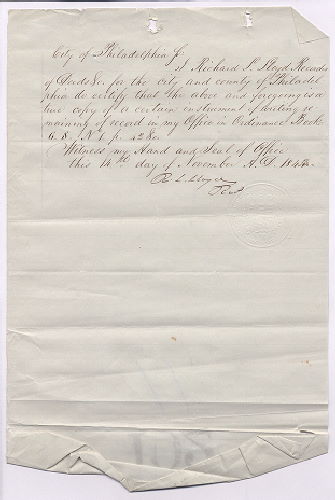 City of Philadelphia ss.
I Richard L. Lloyd Recorder
of Deeds &c for the city and county of Philadel
phia do certify that the above and foregoing is a
true copy of a certain instrument of writing re
maining of record in my Office in Ordinance Book
N 1 p. 428
Witness my Hand and Seal of Office
this 14th day of November A.D. 184
R. L. Lloyd
Rec